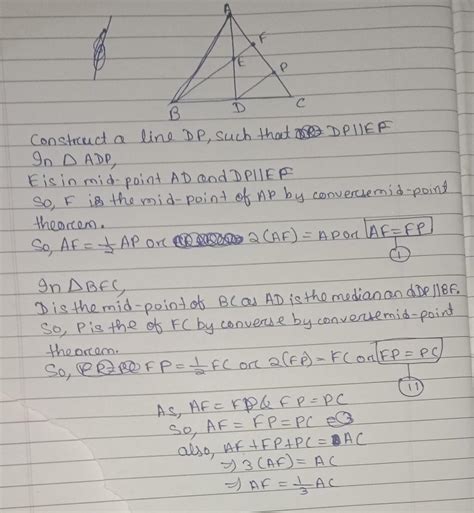 A
F
E
P
B
D
C
Construct a line DP, such that DP||EF
In △ ADP,
E is in mid-point AD and DP||EF
So, F is the mid-point of AP by converse mid-point
theorem.
So, AF = 1/2 AP or 2(AF) = AP or AF = FP
(i)
In △BFC,
D is the mid-point of BC as AD is the median and DP||BF.
So, P is the of FC by converse by converse mid-point
theorem.
So, FP = 1/2 FC or 2(FP) = FC or FP = PC
(ii)
As, AF = FP & FP = PC
So, AF = FP = PC
also, AF + FP + PC = AC
⇒ 3(AF) = AC
⇒ AF = 1/3 AC